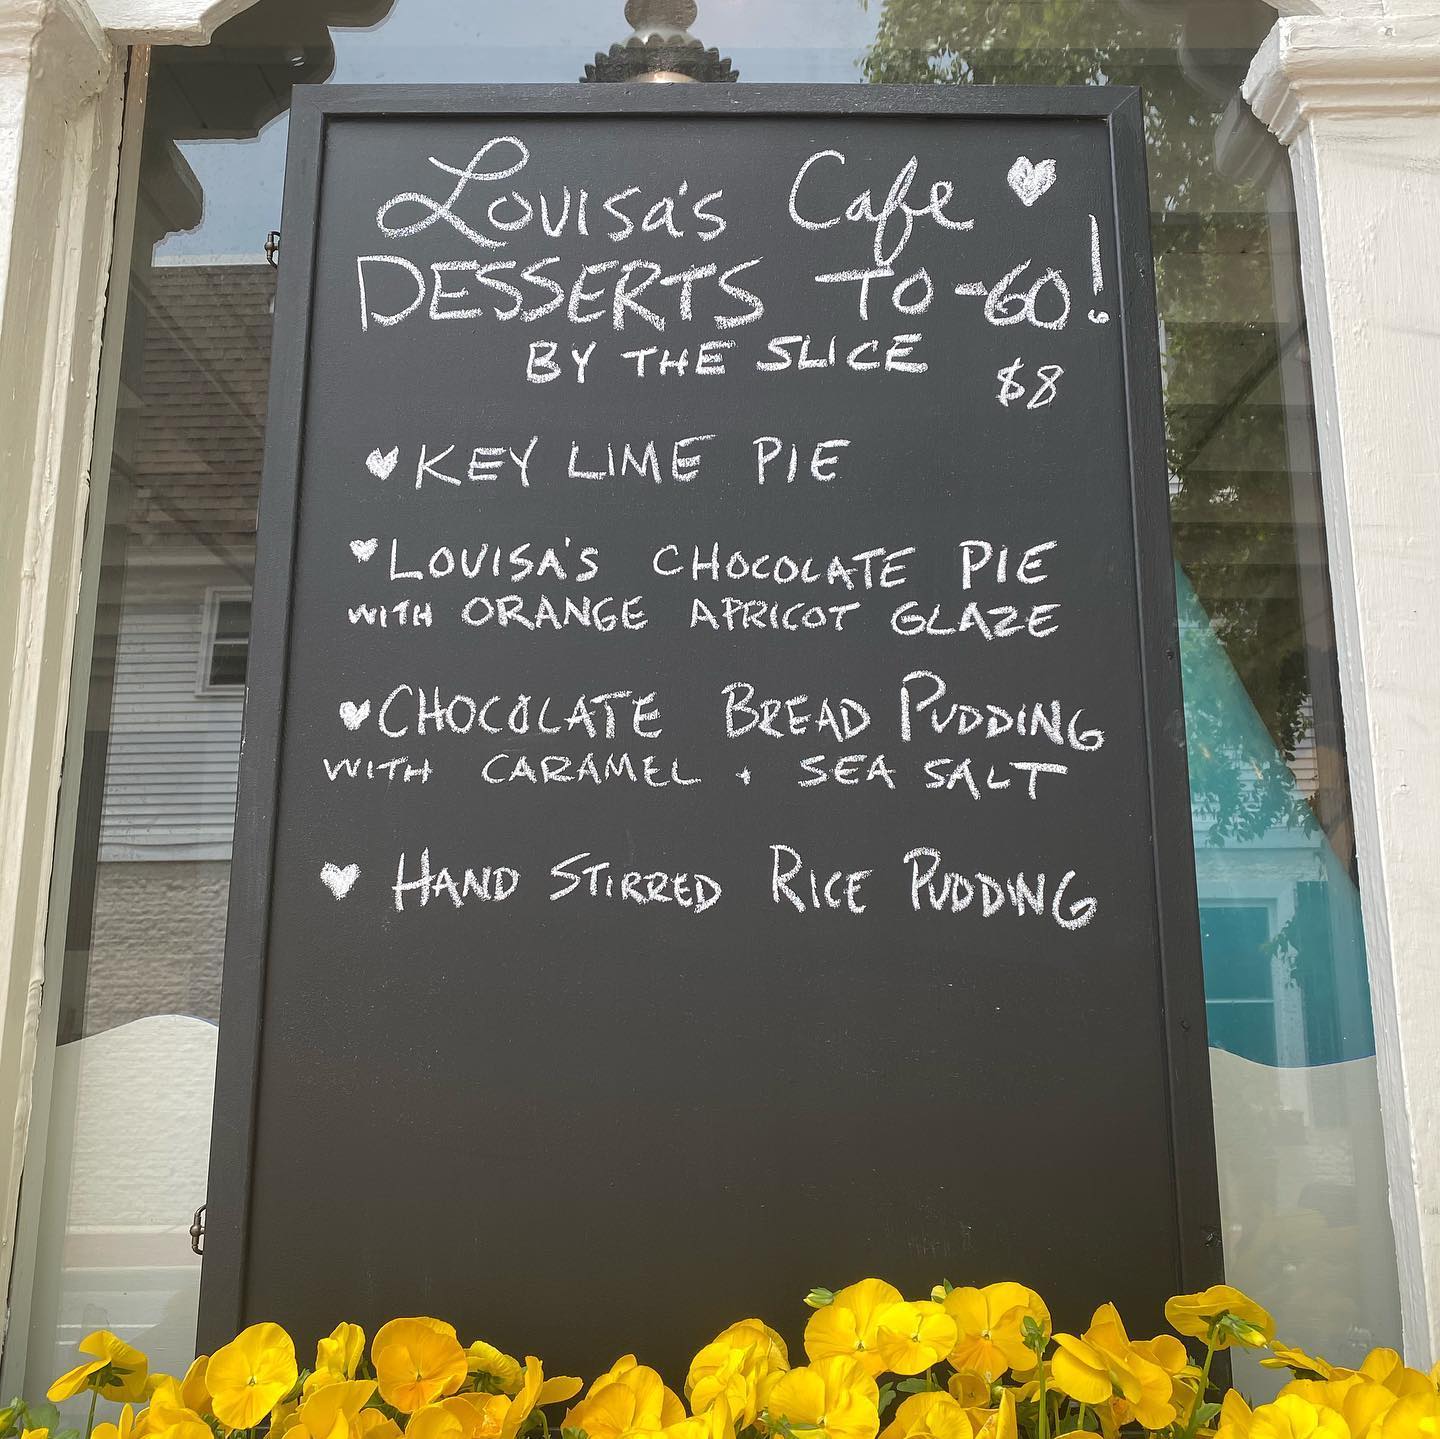 Louisa's Cafe
DESSERTS TO-GO!
BY THE SLICE
$8
KEY LIME PIE
LOUISA'S CHOCOLATE PIE
WITH ORANGE APRICOT GLAZE
CHOCOLATE BREAD PUDDING
WITH CARAMEL + SEA SALT
HAND STIRRED RICE PUDDING